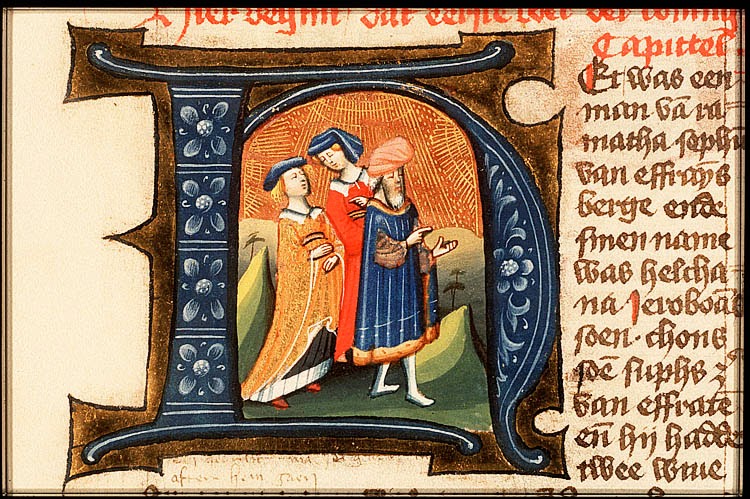 Hier beghint dat eerste boec der coning
Capittel.
Et was een
man vā ra
matha sophī
van effrays
berge ende
sinen name
was helcha
na Jeroboās
soen. chons
soē suphs
van effrate
eñ hij hadde
twee wiue
after hem gaen